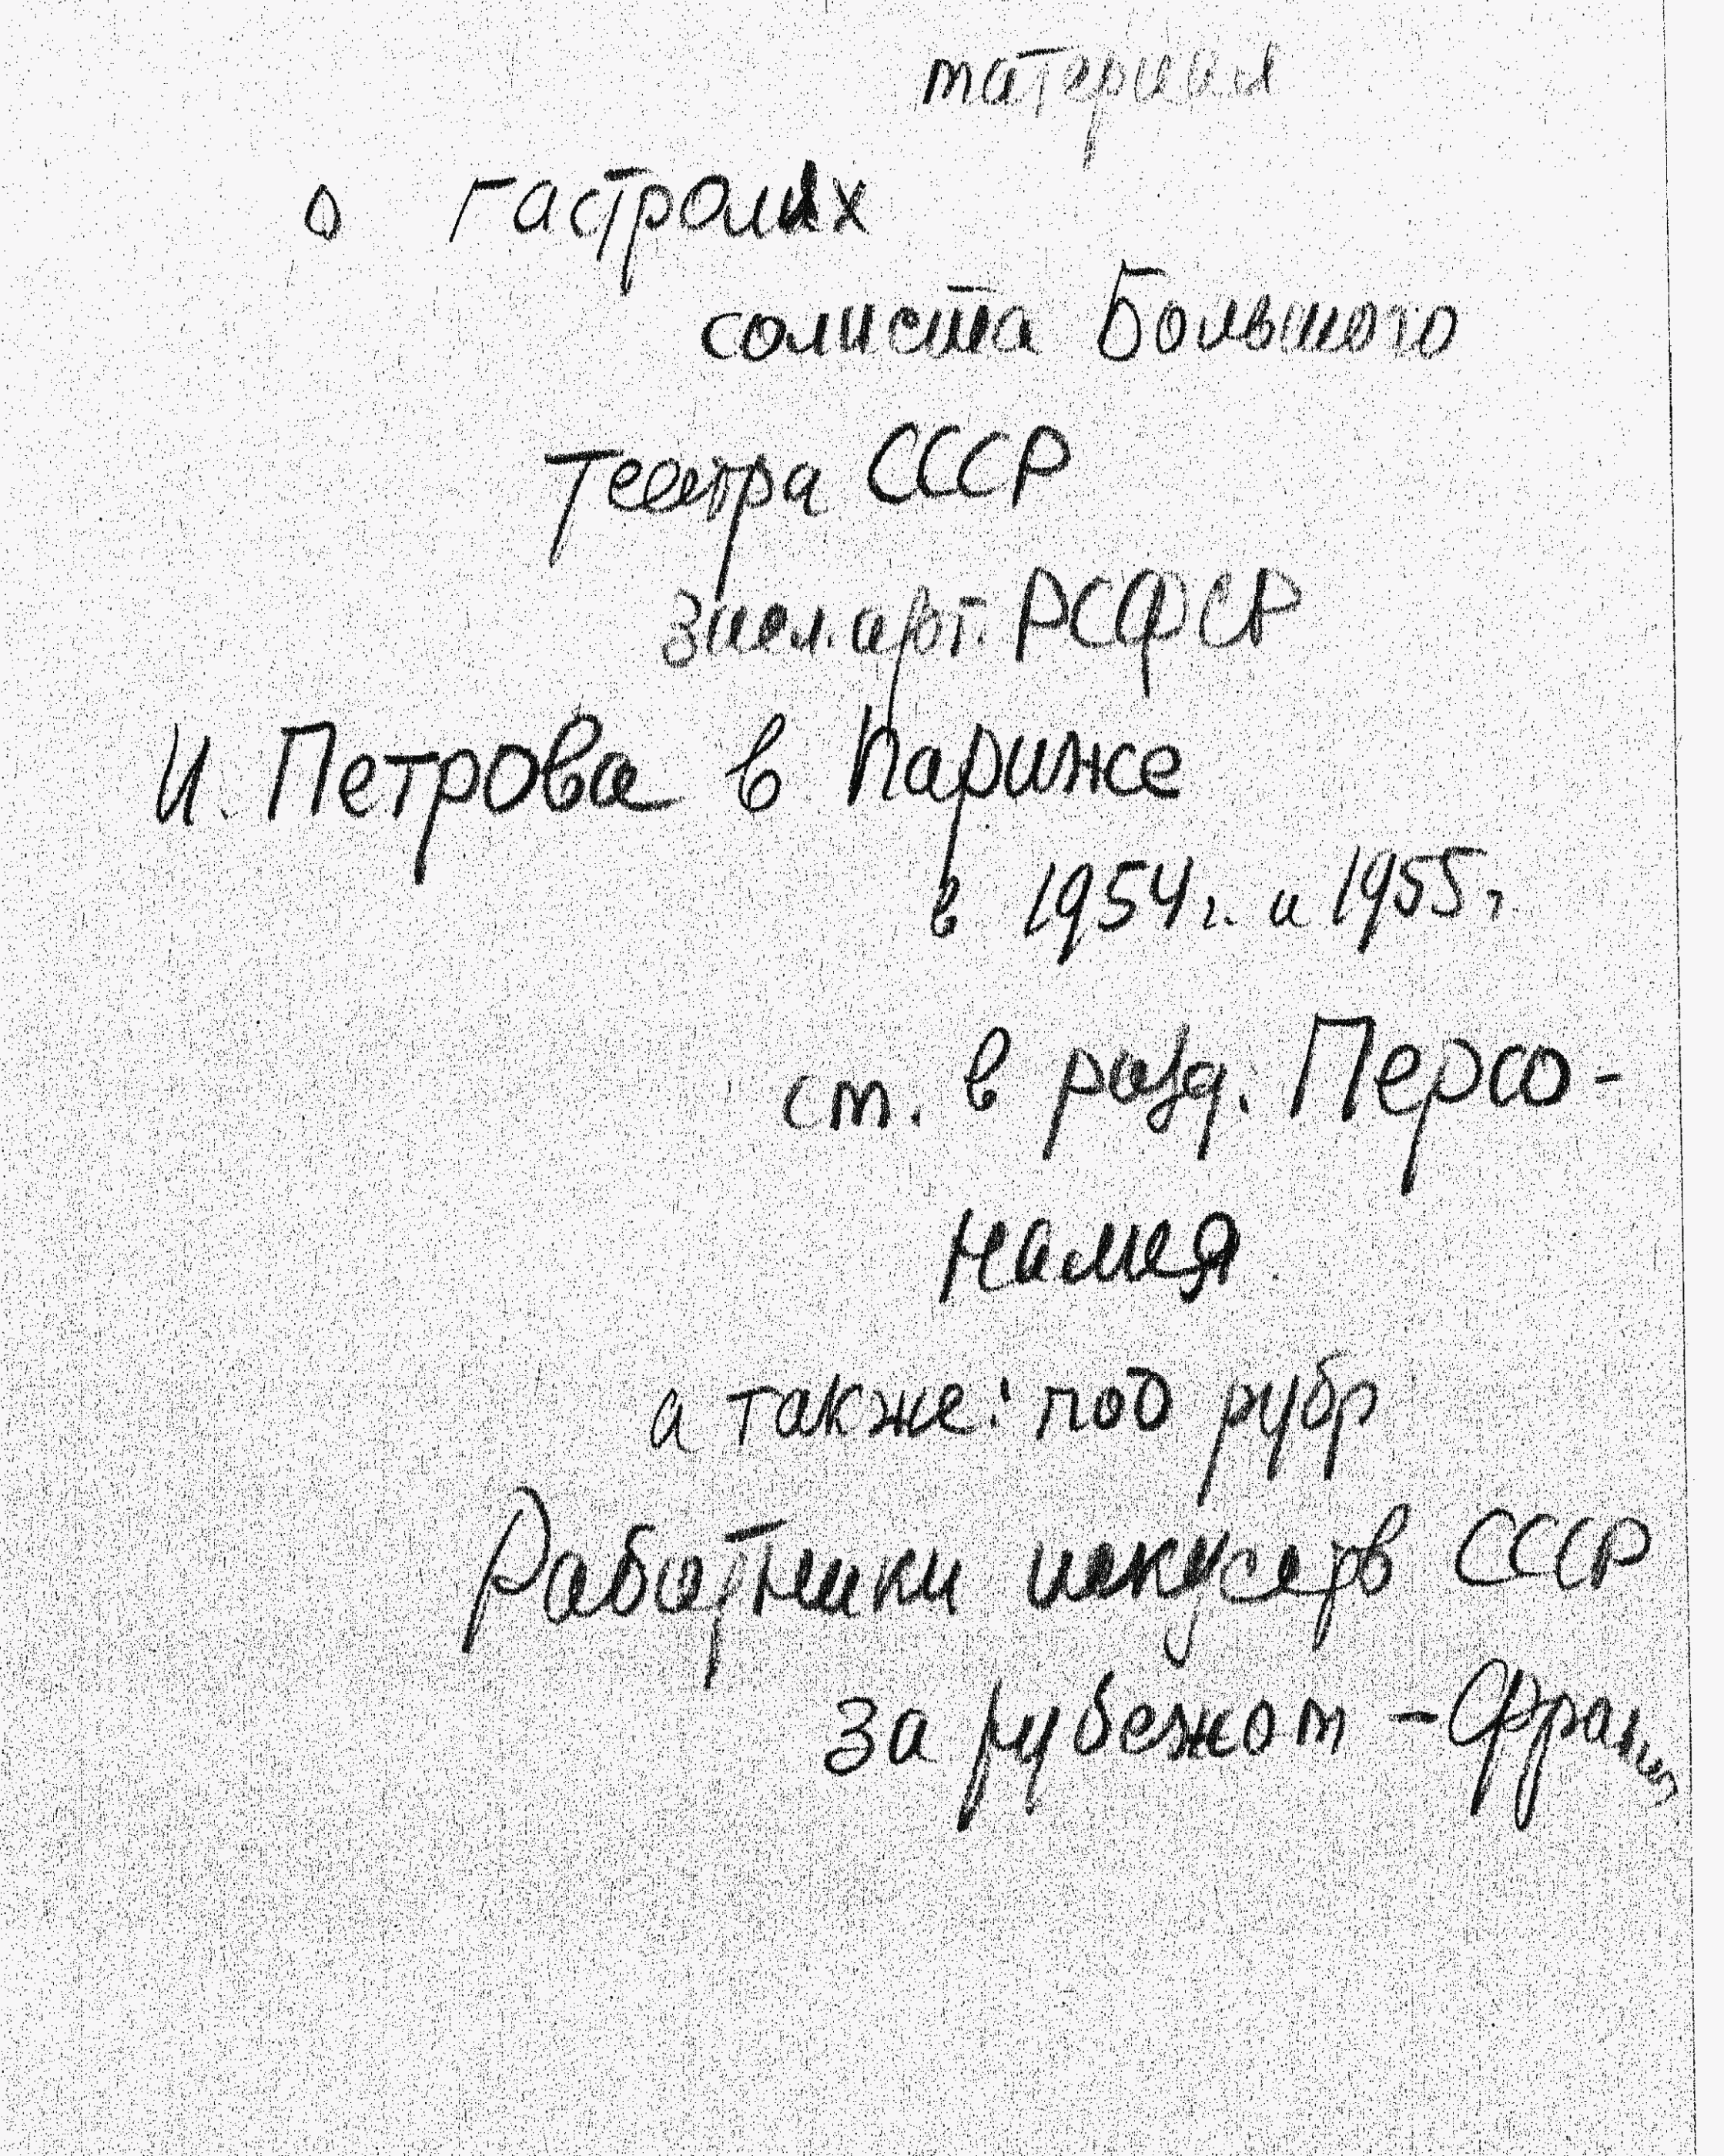 материал
о гастролях
солиста Большого
театра СССР
засл. арт. РСФСР
И. Петрова в Париже
в 1954 г. и 1955 г.
ст. в разд. Персо-
налия
а также: под рубр
Работники искусств СССР
за рубежом - Франция